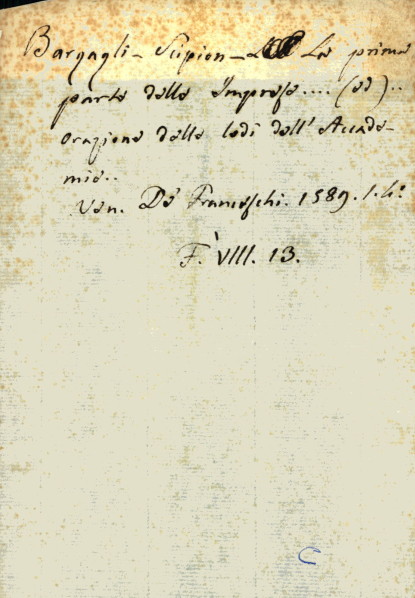 Bargagli - Scipion - La prima
parte delle Imprese .... (ed) ..
Orazione delle lodi dell' Accade-
mie..
Ven. De' Franceschi. 1589. 1. 4°
F. VIII. 13.
C